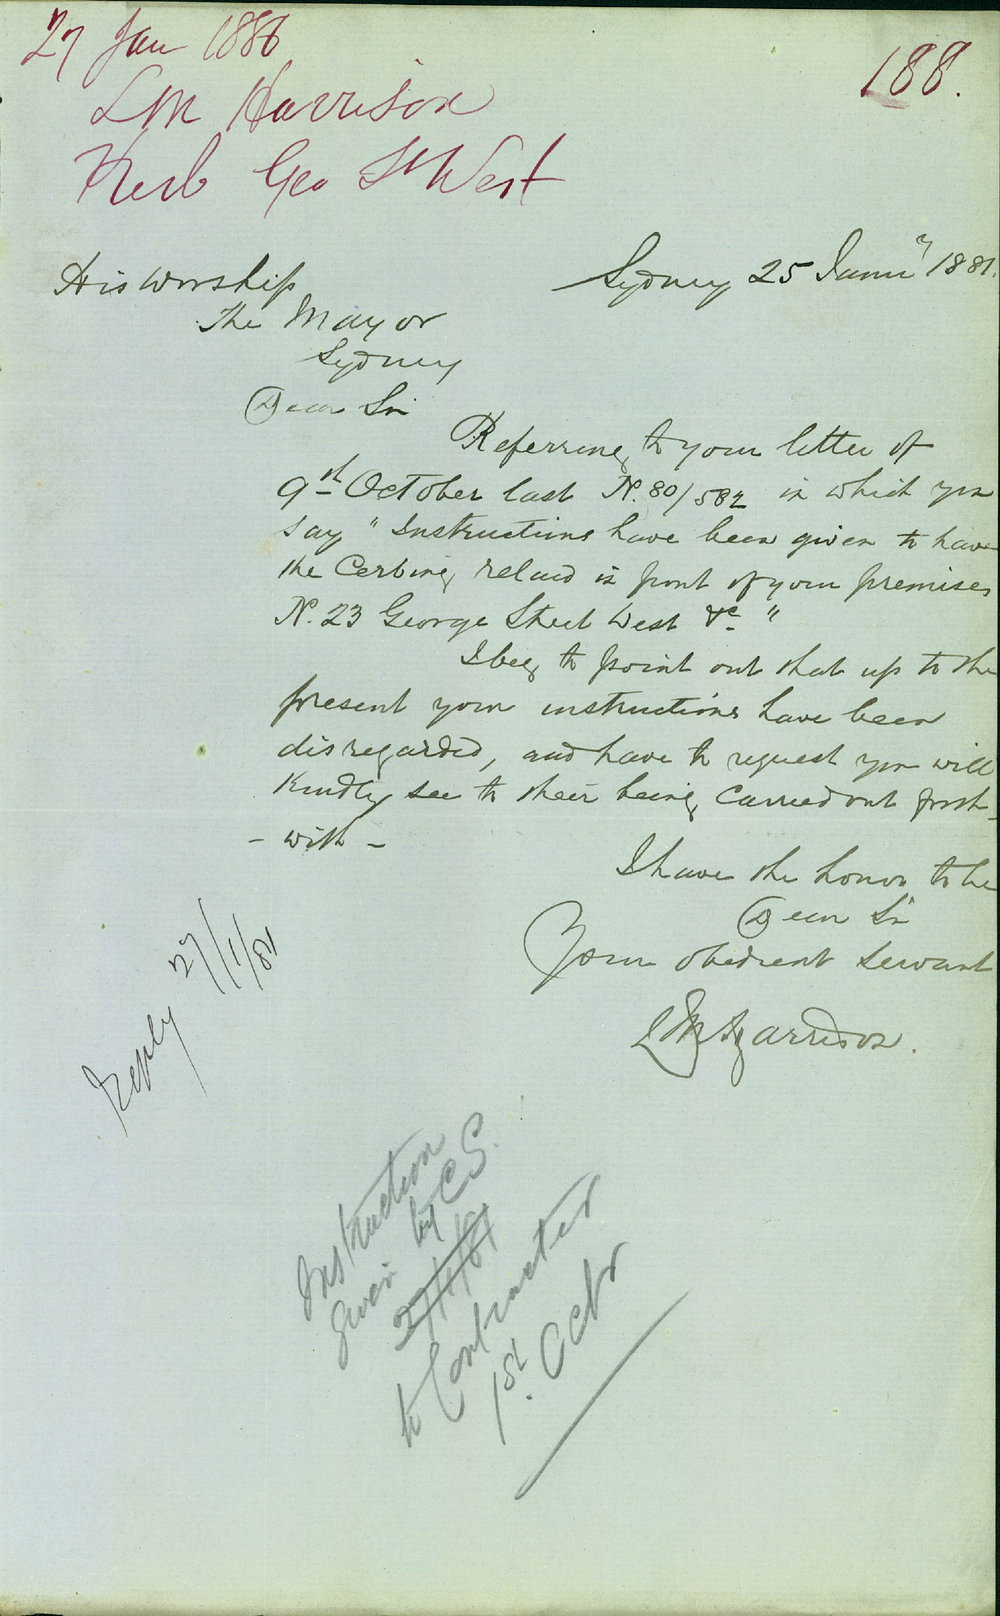 27 Jan 1886
188.
L M Harrison
Kerb Geo St West
Sydney 25 Januy 1881.
His Worship
The Mayor
Sydney
Dear Sir
Referring to your letter of
9th October last No. 80/582 in which you
say "Instructions have been given to have
the Cerbing relaid in front of your premises
No. 23 George Street West &c "
I beg to point out that up to the
present your instructions have been
disregarded, and have to request you will
Kindly see to their being carried out forth-
- with -
I have the honor to be
Dear Sir
Your obedient servant
L M Harrison.
reply 27/1/81
Instruction
given by CS.
2/1/81
to Contractor
1st. Octr